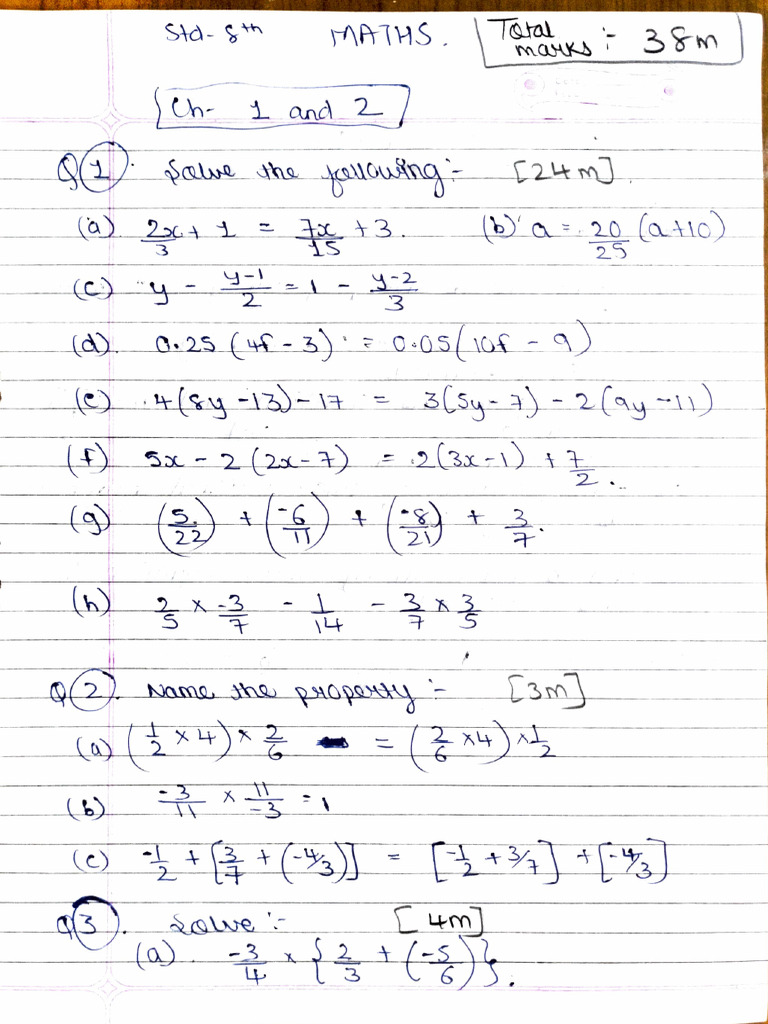 Std- 8th MATHS. Total marks :- 38m
Ch- 1 and 2
Q1. Solve the following :- [24m].
(a) 2x/3 + 1 = 7x/15 + 3. (b) a = 20/25 (a+10)
(c) y - y-1/2 = 1 - y-2/3
(d). 0.25 (4f - 3) = 0.05 (10f - 9)
(e) 4(8y -13) - 17 = 3(5y - 7) - 2(9y -11)
(f) 5x - 2 (2x - 7) = 2(3x - 1) + 7/2.
(g) (5/22) + (-6/11) + (-8/21) + 3/7.
(h) 2/5 × -3/7 - 1/14 - 3/7 × 3/5
Q2. Name the property :- [3m]
(a) (1/2 × 4) × 2/6 = (2/6 × 4) × 1/2
(b) -3/11 × 11/-3 = 1
(c) -1/2 + [3/7 + (-4/3)] = [-1/2 + 3/7] + [-4/3]
Q3. Solve :- [4m]
(a). -3/4 × {2/3 + (-5/6)}.